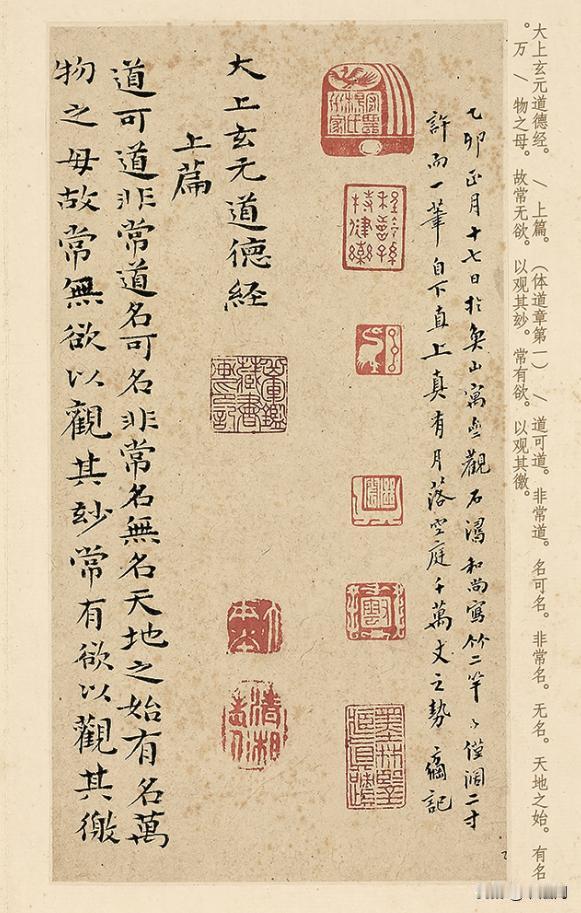 大上玄元道德经。 / 上篇。（体道章第一） / 道可道。非常道。名可名。非常名。无名。天地之始。有名
。万 / 物之母。故常无欲。以观其妙。常有欲。以观其徼。
乙卯正月十七日於山寓觀石濤和尚寫竹二竿々僅濶二寸
許而一筆自下直上真有月落空庭千萬丈之勢 記
大上玄元道德経
上篇
道可道非常道名可名非常名無名天地之始有名萬
物之母故常無欲以觀其玅常有欲以觀其徼